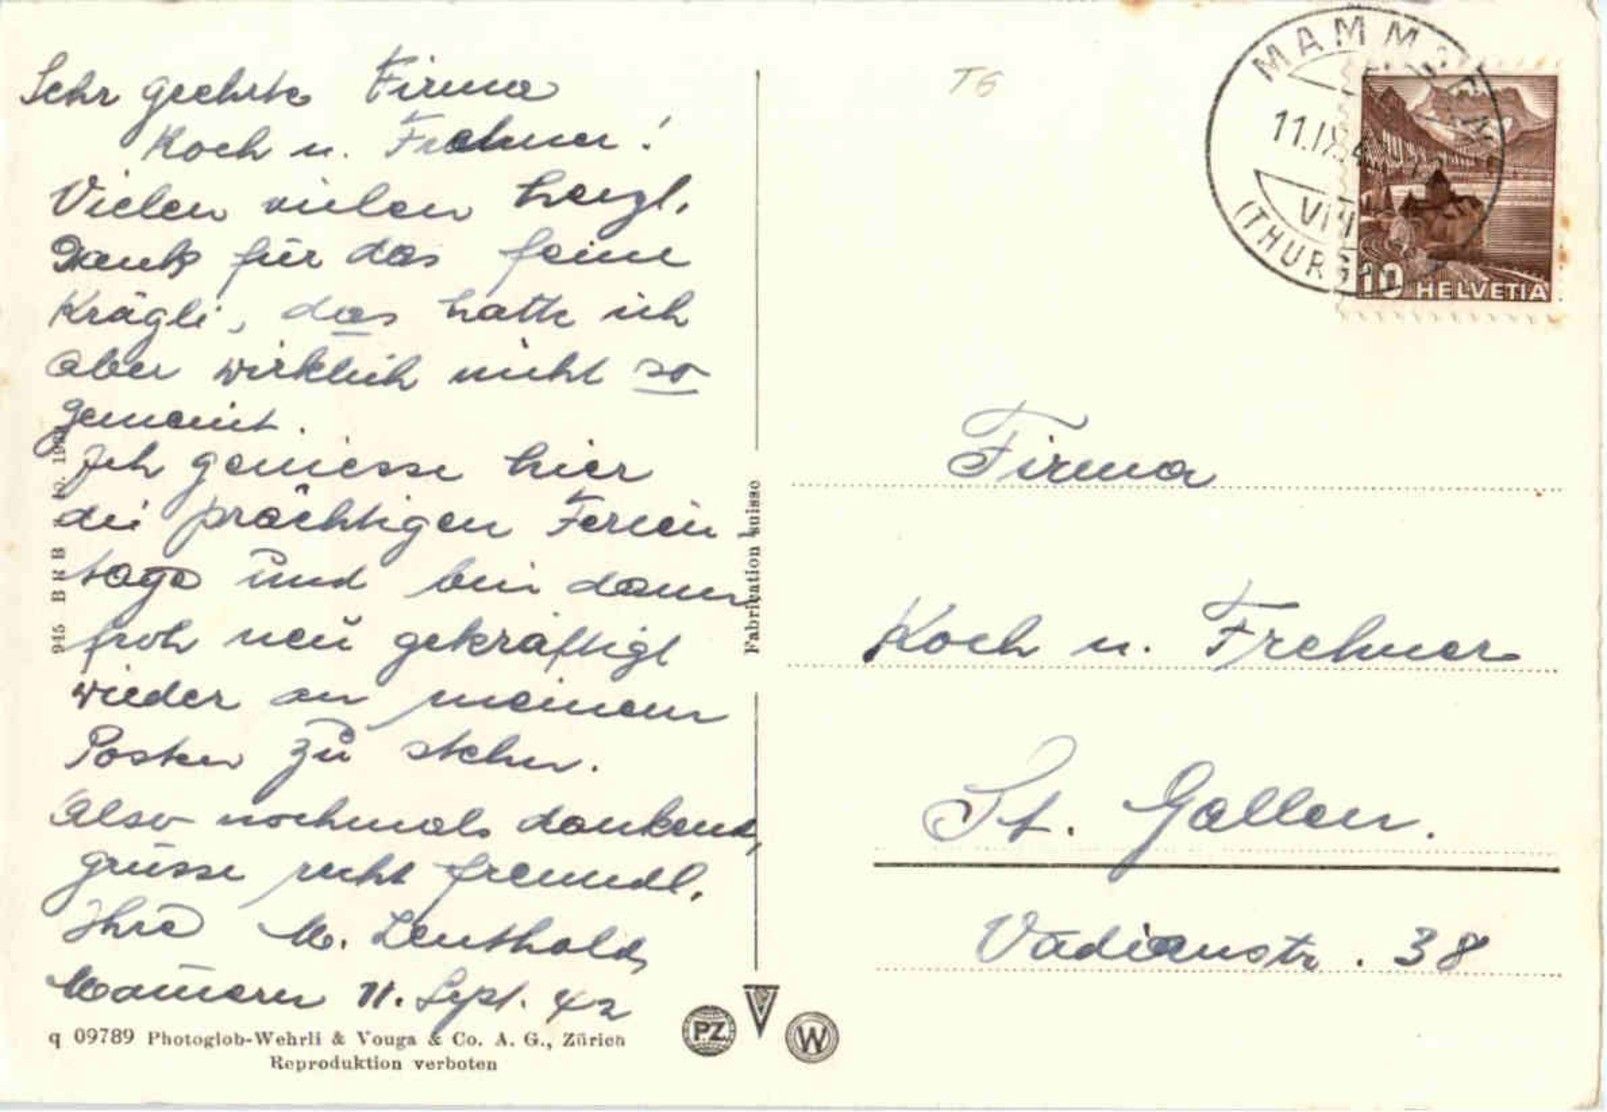 Sehr geehrte Firma
Koch u. Frehner!
Vielen vielen herzl.
Dank für das feine
Krägli, das hatte ich
aber wirklich nicht so
gemeint.
Ich geniesse hier
die prächtigen Ferien-
tage und bin dann
froh neu gekräftigt
wieder an meinem
Posten zu stehen.
Also nochmals dankend,
grüsse recht freundl.
Ihre M. Leuthold,
Mammern 11. Sept. 42
q 09789 Photoglob-Wehrli & Vouga & Co. A. G., Zürich
Reproduktion verboten
945 BRB
Fabrication suisse
PZ
W
T6
MAMMERN
11.IX.4
(THURG
10 HELVETIA
Firma
Koch u. Frehner
St. Gallen.
Vadianstr. 38